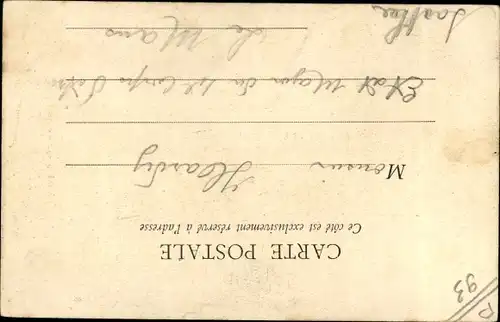 CARTE POSTALE
Ce côté est exclusivement réservé à l'adresse
Monsieur Hardy
Etat Major du Corps
Le Mans
Sarthe
93